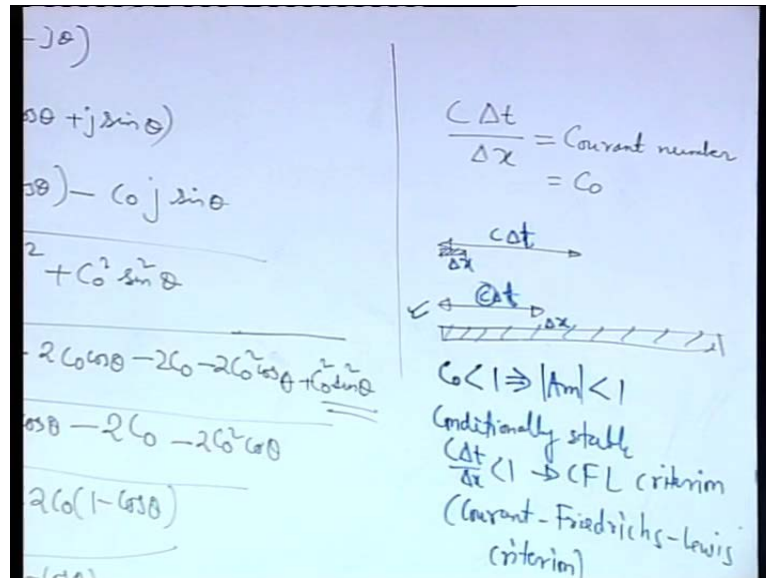 -jθ)
osθ + j sin θ)
sθ) - Co j sin θ
2 + Co² sin² θ
- 2Co cosθ - 2Co - 2Co² cosθ + Co² sin² θ
osθ - 2Co - 2Co² cosθ
2Co(1-cosθ)
CΔt/Δx = Courant number
= Co
CΔt
Δx
CΔt
Δx
Co < 1 ⇒ |Am| < 1
Conditionally stable
CΔt/Δx < 1 → CFL criterion
(Courant-Friedrichs-Lewis
criterion)